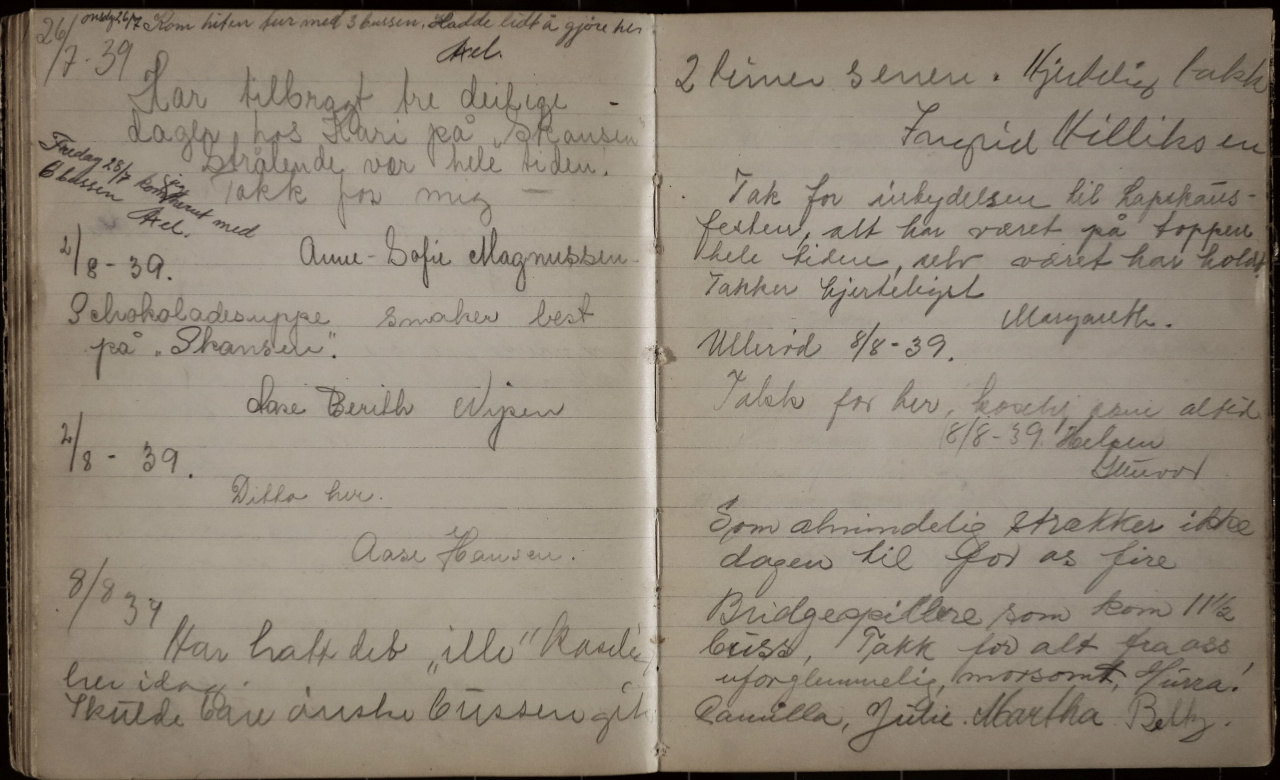 26/7-39
onsdag 26/7 Kom hiten tur med 3 bussen. Hadde lidt å gjöre her
Axel.
Har tilbragt tre deilige
dager hos Kari på „Skansen
Strålende vær hele tiden.
Takk for mig —
Fredag 28/7 kom jeg herut med
6 bussen Axel.
2/8-39.
Anne-Sofie Magnussen
Schokoladesuppe smaker best
på „Skansen".
Aase Berith
2/8 - 39.
Ditto her.
Aase Hansen.
8/8 39
Har hatt det „ille" koselig
her idag.
Skulde bare ønske bussen gik
2 timer senere. Hjertelig takk
Ingrid Killiksen
Tak for inbydelsen til Lapskaus-
festen, alt har været på toppen
hele tiden, selv været har holdt
Takker hjerteligst
Margareth.
Ullerød 8/8-39.
Takk for her, koselig som altid
8/8-39. Helsen
Gunvor
Som almindelig strækker ikke
dagen til for os fire
Bridgespillere som kom 11½
buss, Takk for alt fra oss
uforglemmelig, morsomt, Hurra!
Camilla, Julie. Martha Betty.